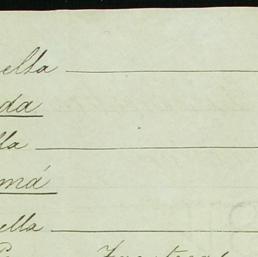 ella
da
lla
má
ella